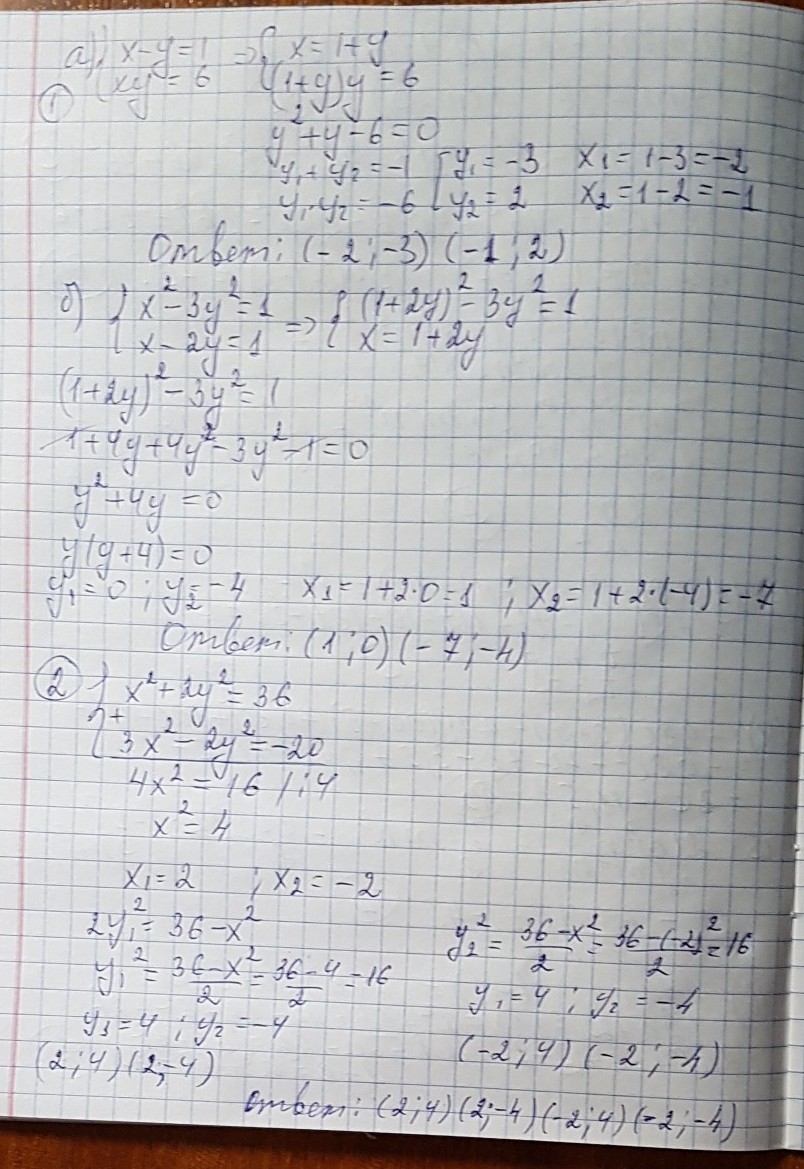 а) { x-y=1 => { x=1+y
① { xy=6 { (1+y)y=6
y²+y-6=0
y₁+y₂=-1 [ y₁=-3 x₁=1-3=-2
y₁·y₂=-6 [ y₂=2 x₂=1-2=-1
Ответ: (-2;-3) (-1;2)
б) { x²-3y²=1 => { (1+2y)²-3y²=1
{ x-2y=1 { x=1+2y
(1+2y)²-3y²=1
1+4y+4y²-3y²-1=0
y²+4y=0
y(y+4)=0
y₁=0 ; y₂=-4 x₁=1+2·0=1 ; x₂=1+2·(-4)=-7
Ответ: (1;0) (-7;-4)
② { x²+2y²=36
+
{ 3x²-2y²=-20
4x²=16 /:4
x²=4
x₁=2 ; x₂=-2
2y₁²=36-x²
y₁²=(36-x²)/2=(36-4)/2=16
y₁=4 ; y₂=-4
(2;4) (2;-4)
y₂²=(36-x²)/2=(36-(-2)²)/2=16
y₁=4 ; y₂=-4
(-2;4) (-2;-4)
Ответ: (2;4) (2;-4) (-2;4) (-2;-4)